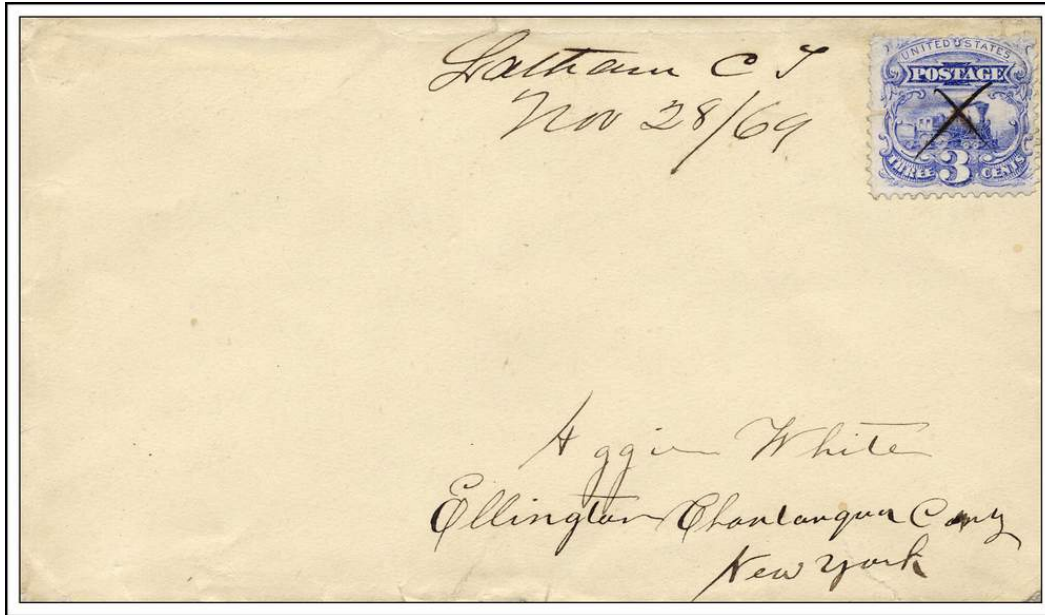 Latham C T
Nov 28/69
UNITED STATES
POSTAGE
THREE 3 CENTS
Aggie White
Ellington Chautauqua Conty
New York